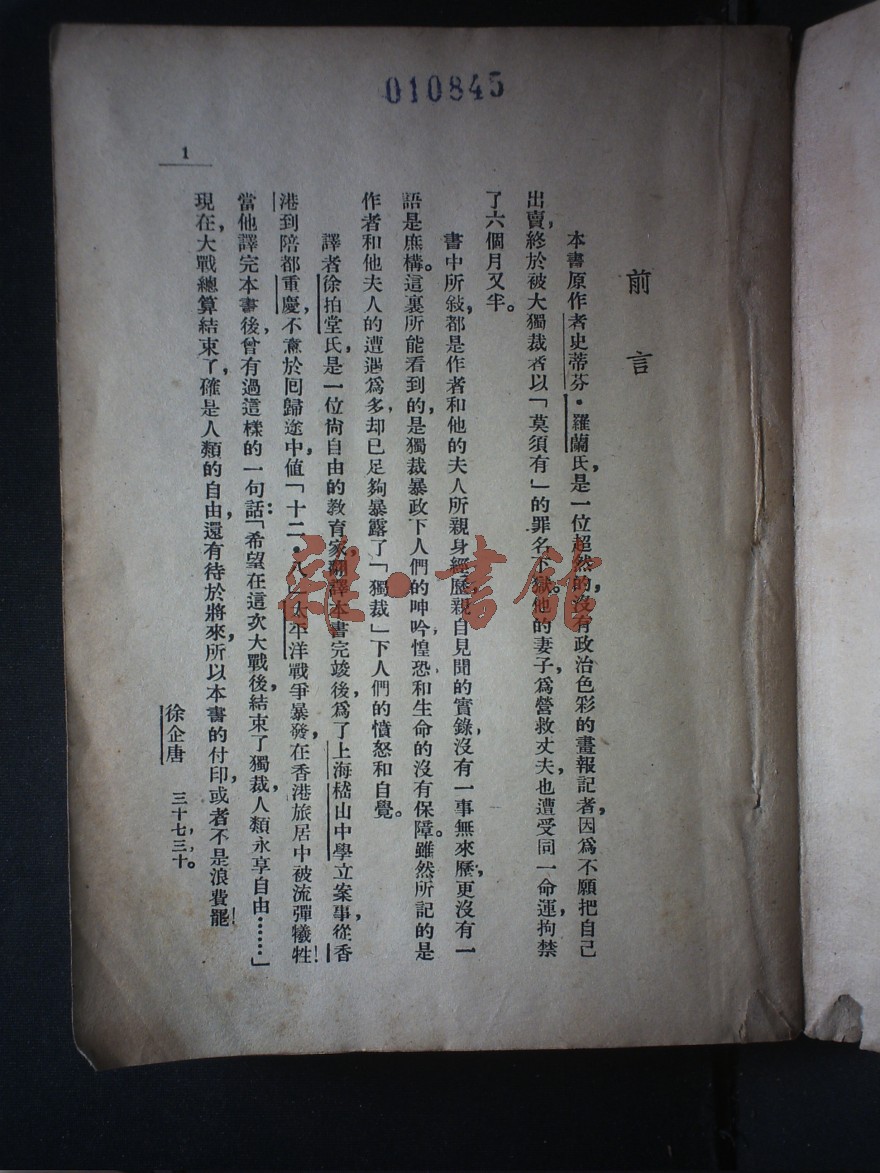 010845
前言
本書原作者史蒂芬·羅蘭氏,是一位超然的,沒有政治色彩的畫報記者,因爲不願把自己
出賣,終於被大獨裁者以「莫須有」的罪名下獄。他的妻子,爲營救丈夫,也遭受同一命運,拘禁
了六個月又半。
書中所敍,都是作者和他的夫人所親身經歷,親自見聞的實錄,沒有一事無來歷,更沒有一
語是庶構。這裏所能看到的,是獨裁暴政下人們的呻吟惶恐和生命的沒有保障。雖然所記的是
作者和他夫人的遭遇爲多,却已足夠暴露了「獨裁」下人們的憤怒和自覺。
譯者徐拍堂氏,是一位尙自由的敎育家,翻譯本書完竣後,爲了上海嵇山中學立案事,從香
港到陪都重慶,不意於囘歸途中,値「十二·八」太平洋戰爭暴發,在香港旅居中被流彈犧牲!
當他譯完本書後,曾有過這樣的一句話:「希望在這次大戰後,結束了獨裁,人類永享自由……」
現在,大戰總算結束了,確是人類的自由,還有待於將來,所以本書的付印,或者不是浪費罷!
徐企唐 三十七,三,十。
1
雜·書館